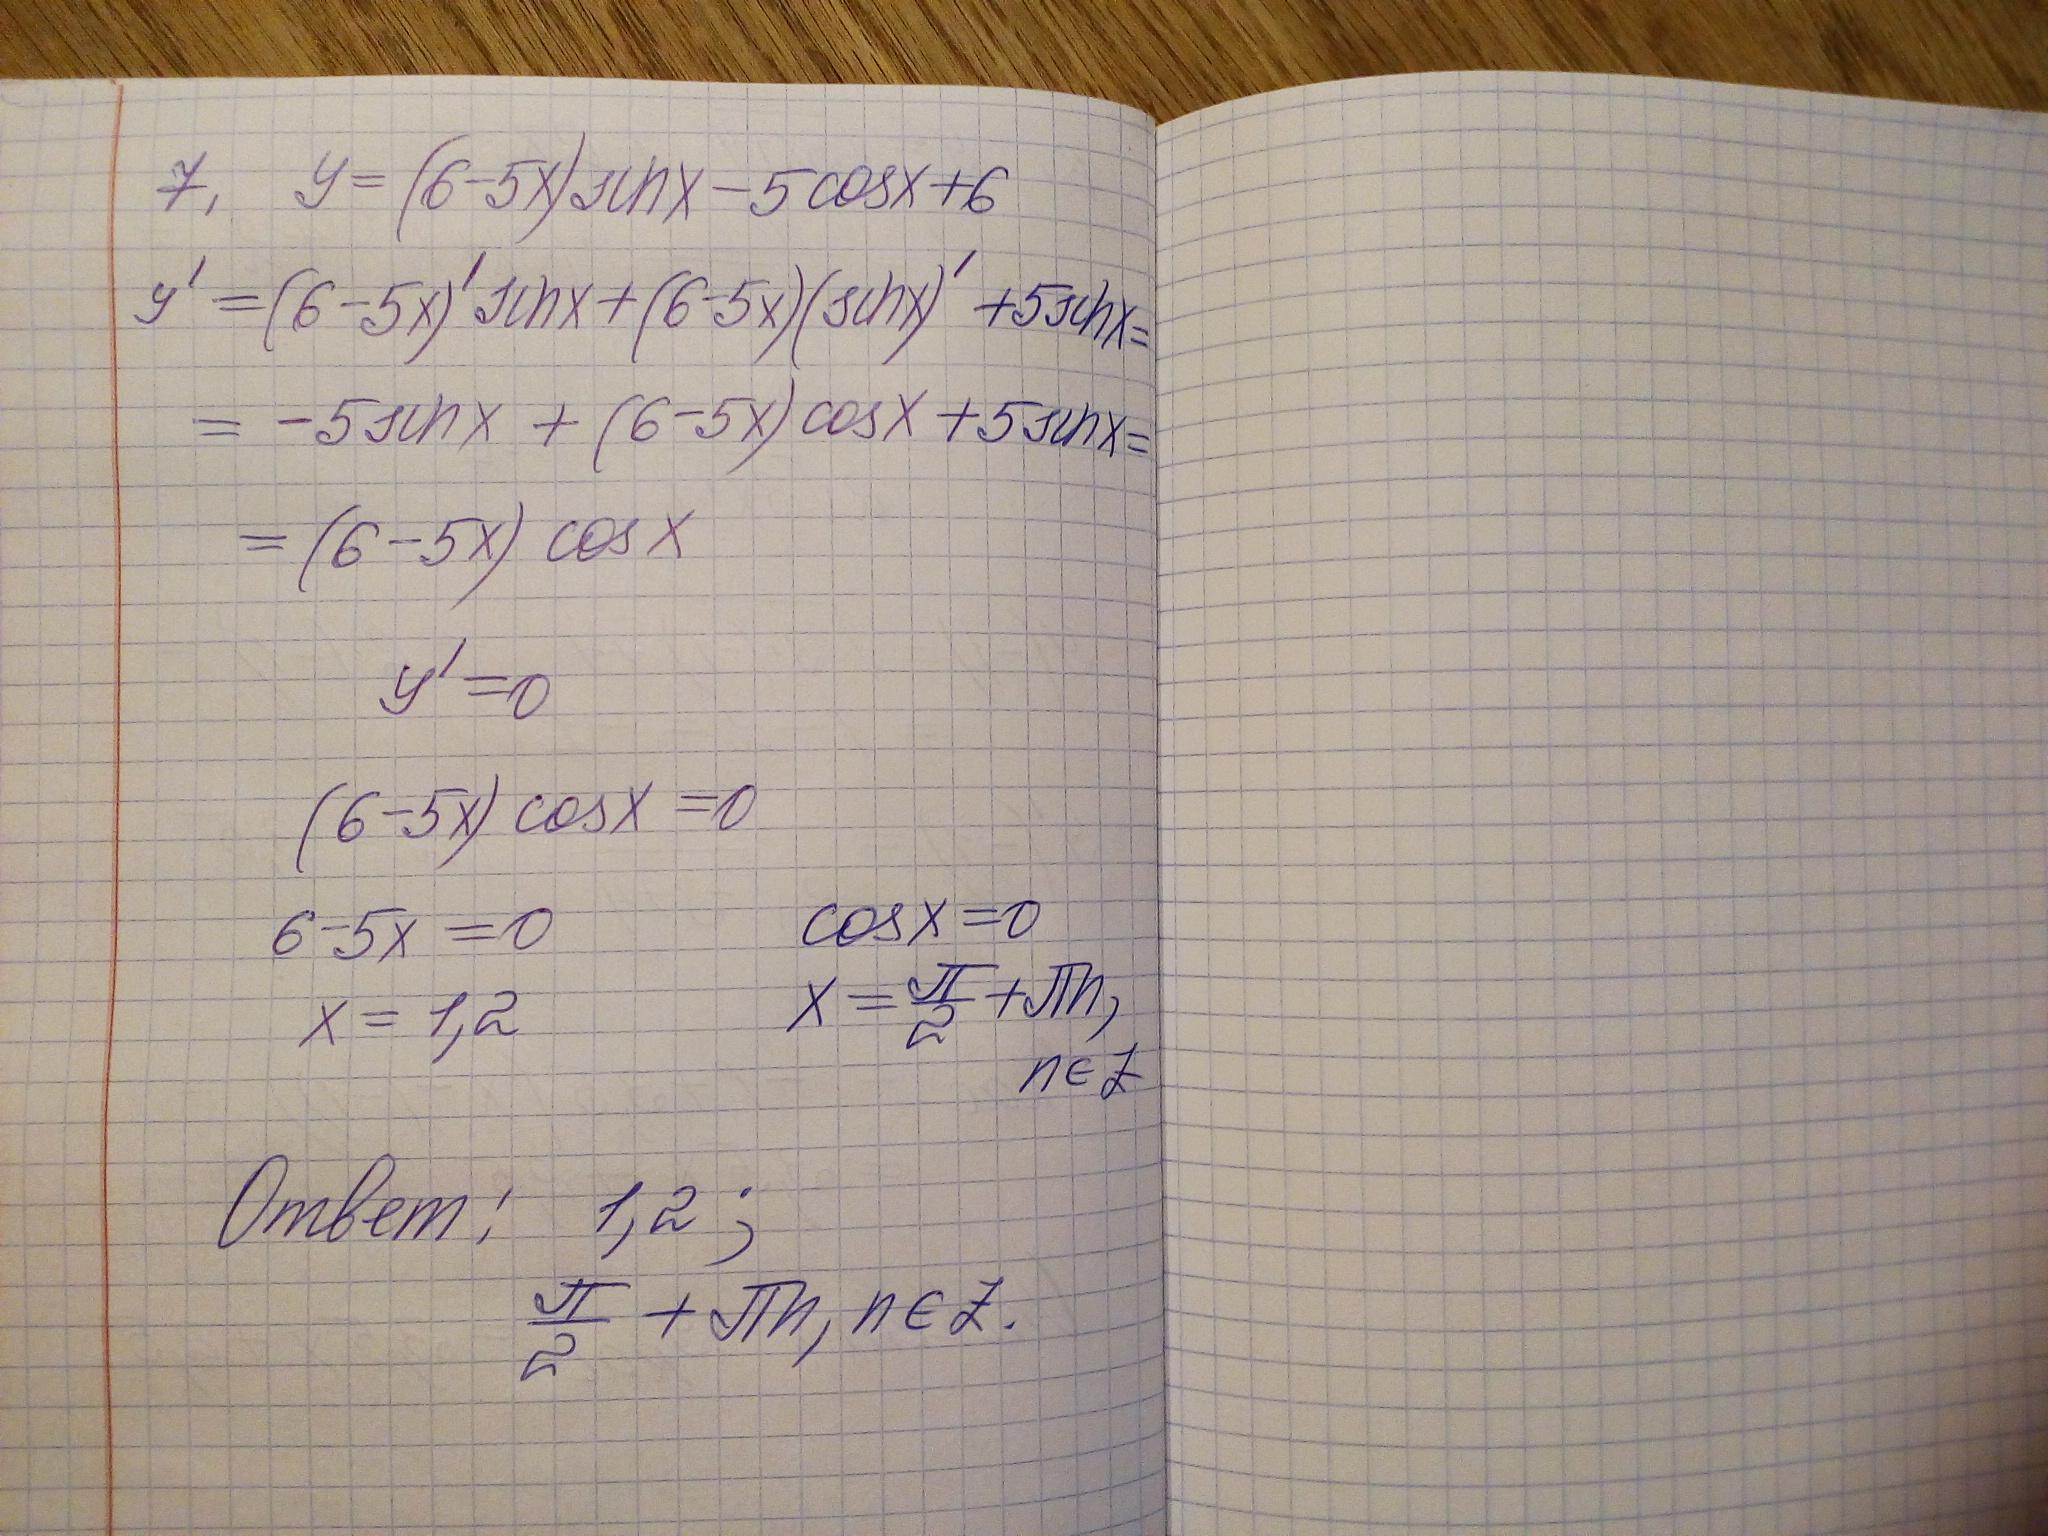 7, y=(6-5x)sinx-5cosx+6
y'=(6-5x)'sinx+(6-5x)(sinx)'+5sinx=
= -5sinx + (6-5x)cosx+5sinx=
=(6-5x) cosx
y'=0
(6-5x) cosx =0
6-5x =0 cosx=0
x = 1,2 x = π/2 +πn,
n∈Z
Ответ: 1,2 ;
π/2 + πn, n∈Z.